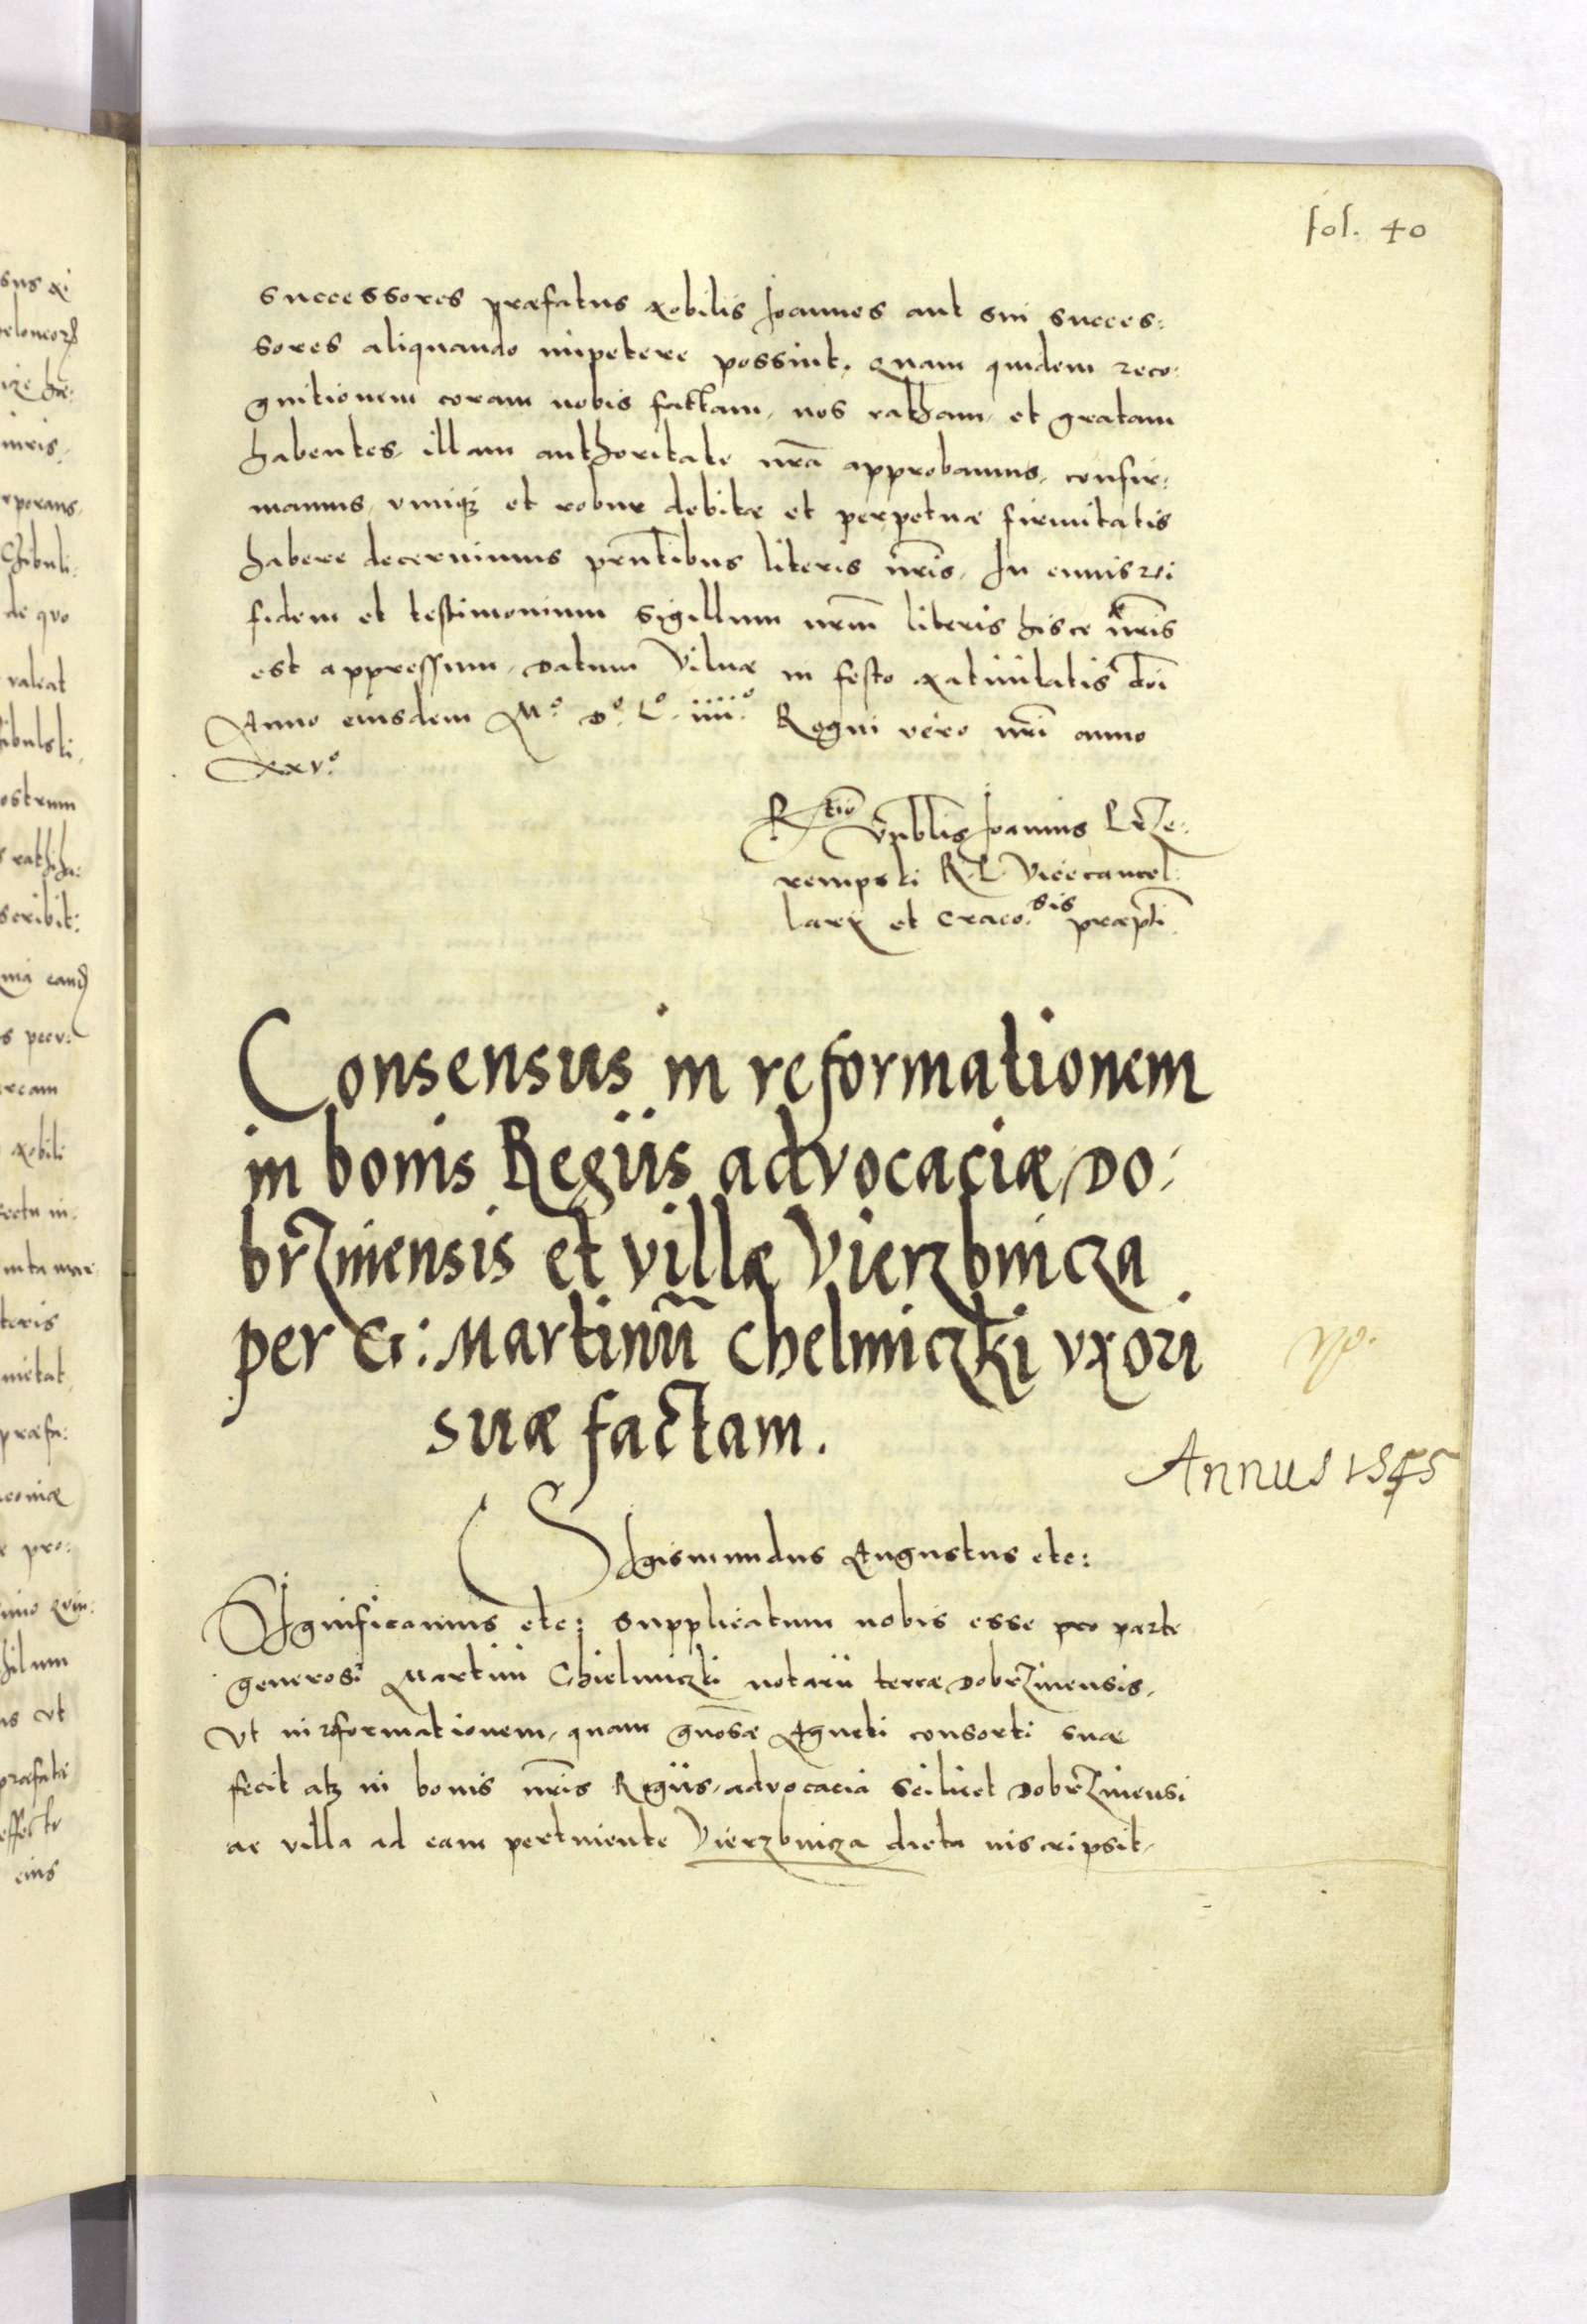 fol. 40
successores præfatus Nobilis Joannes aut sui succes:
sores aliquando impetere possint. Quam quidem reco:
gnitionem coram nobis factam, nos ratham, et gratam
habentes, illam authoritate nrã approbamus, confir:
mamus, vimqz et robur debitæ et perpetuæ firmitatis
habere decernimus prntibus literis nris. In cuius rei
fidem et testimonium Sigillum nrm literis hisce nris
est appressum. Datum Vilnæ in festo Nativitatis doi
Anno eiusdem Mº. Dº. Lº. iiiiº. Regni vero nri anno
xxvº.
Rtio Vnblis Joannis Prze:
rempski R. P. Vicecancel:
larij et Craco.sis præpti
Consensus in reformationem
in bonis Regiis advocaciæ Do:
brzinensis et villæ Vierzbnicza
per G: Martinũ Chelmiczki vxori
suæ factam.
Annus 1545
Sigismundus Augustus etc:
Significamus etc: Supplicatum nobis esse pro parte
generosi Martini Chielmiczki notarii terræ Dobrzinensis,
Vt in reformationem, quam gnosæ Agneti consorti suæ
fecit atqz in bonis nris Regiis, advocacia scilicet Dobrzinensi
ac villa ad eam pertinente Vierzbnicza dicta inscripsit,